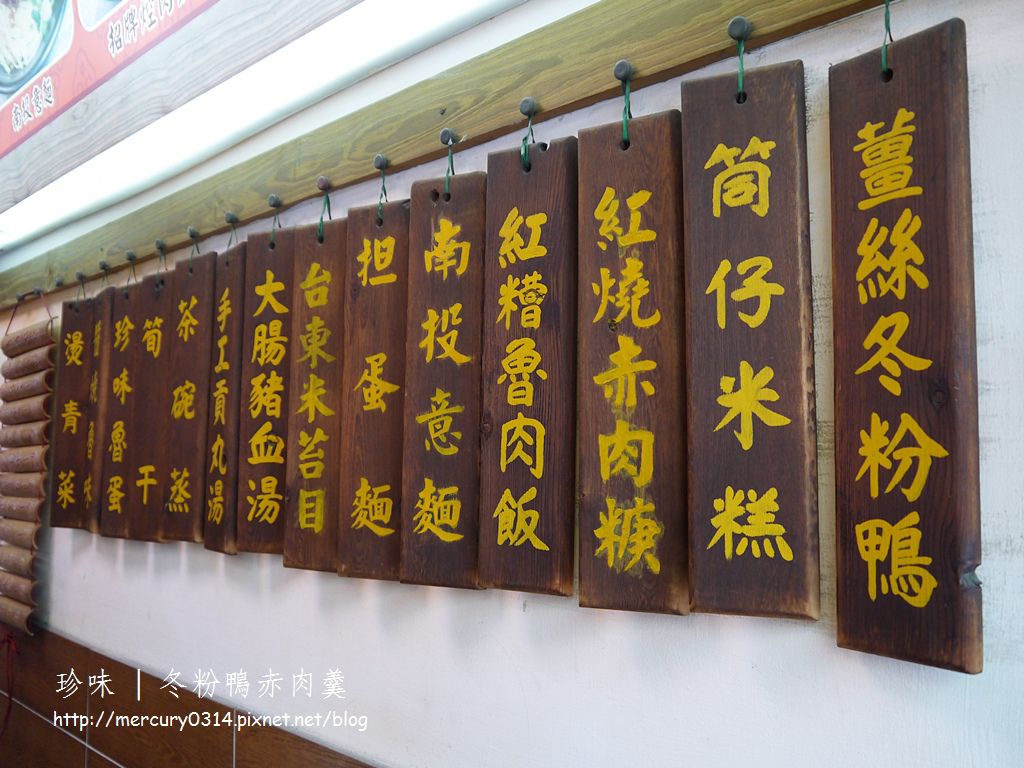 招牌焢肉
南投意麵
薑絲冬粉鴨
筒仔米糕
紅燒赤肉焿
紅糟魯肉飯
南投意麵
担蛋麵
台東米苔目
大腸豬血湯
手工貢丸湯
茶碗蒸
筍干
珍味魯蛋
魯味
燙青菜
珍味 | 冬粉鴨赤肉羹
http://mercury0314.pixnet.net/blog